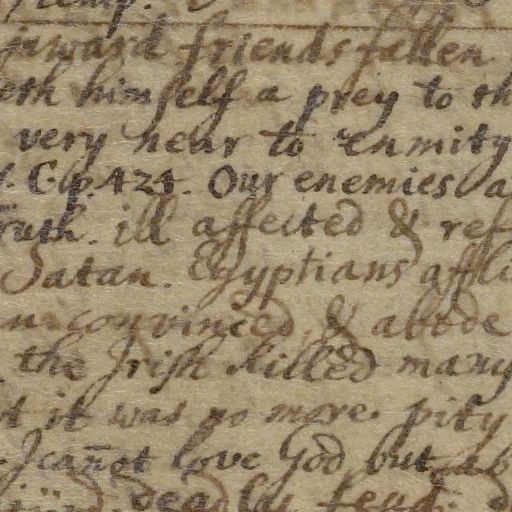 inward friends fallen
eth himself a prey to th
very near to enmity
Cap. 424. Our enemies a
ruth. ill affected & ref
Satan. Egyptians affli
unconvinced, & abode
the Irish killed many
t it was no more pity
I can̄ot love God, but ab
deadly feud.